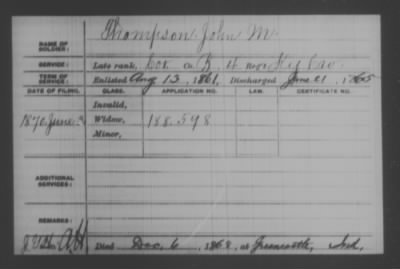 NAME OF SOLDIER: Thompson John M.
SERVICE: Late rank, Cor. Co. B, 4 Reg't Ky Cav.
TERM OF SERVICE: Enlisted Aug 13, 1861, Discharged June 21, 1865
DATE OF FILING. CLASS. APPLICATION NO. LAW. CERTIFICATE NO.
Invalid,
1870 June Widow, 188.598
Minor,
ADDITIONAL SERVICES:
REMARKS:
Died Dec. 6, 1868, at Greencastle, Ind.